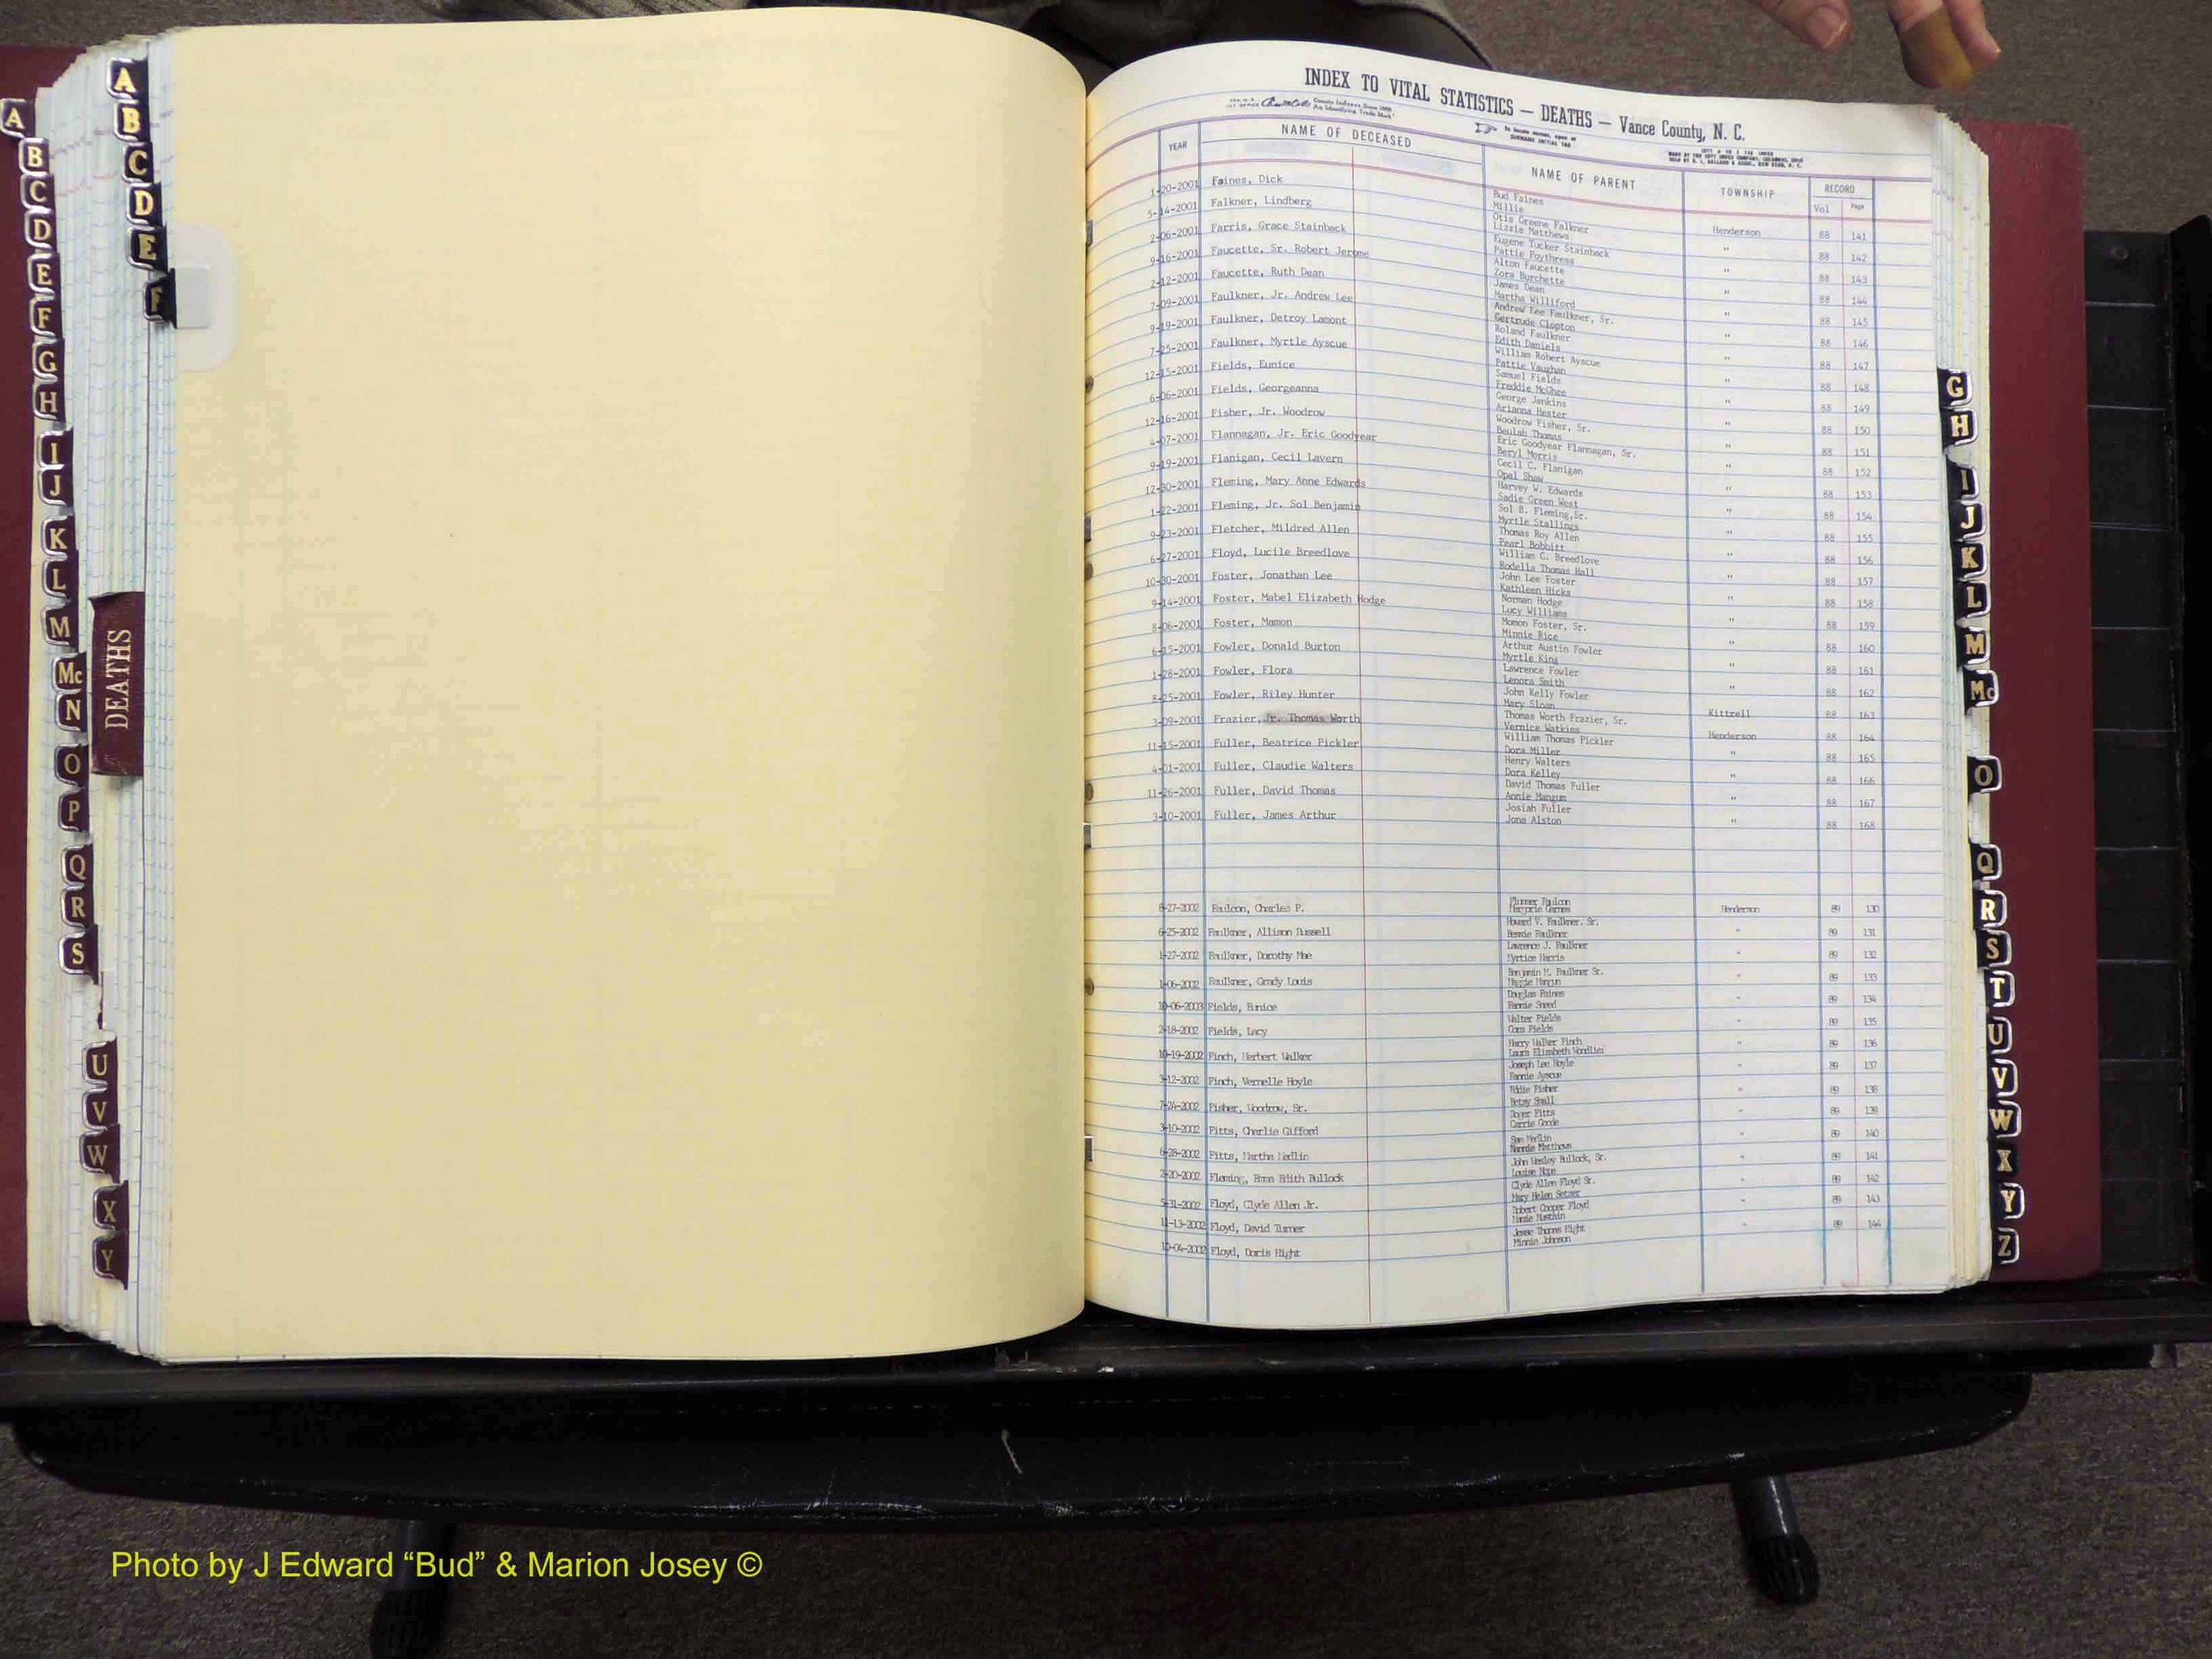 A
B
C
D
E
F
G
H
I
J
K
L
M
Mc
N
O
P
Q
R
S
U
V
W
X
Y
A
B
C
D
E
F
DEATHS
INDEX TO VITAL STATISTICS — DEATHS — Vance County, N. C.
YEAR NAME OF DECEASED NAME OF PARENT TOWNSHIP RECORD
Vol Page
1-20-2001 Faines, Dick Bud Faines Henderson 88 141
Millie
5-14-2001 Falkner, Lindberg Otis Greene Falkner " 88 142
Lizzie Matthews
2-06-2001 Farris, Grace Stainback Eugene Tucker Stainback " 88 143
Pattie Poythress
9-16-2001 Faucette, Sr. Robert Jerome Alton Faucette " 88 144
Zora Burchette
2-12-2001 Faucette, Ruth Dean James Dean " 88 145
Martha Williford
7-09-2001 Faulkner, Jr. Andrew Lee Andrew Lee Faulkner, Sr. " 88 146
Gertrude Clopton
9-19-2001 Faulkner, Detroy Lamont Roland Faulkner " 88 147
Edith Daniels
7-25-2001 Faulkner, Myrtle Ayscue William Robert Ayscue " 88 148
Pattie Vaughan
12-15-2001 Fields, Eunice Samuel Fields " 88 149
Freddie McGhee
6-06-2001 Fields, Georgeanna George Jenkins " 88 150
Arianna Hester
12-16-2001 Fisher, Jr. Woodrow Woodrow Fisher, Sr. " 88 151
Beulah Thomas
4-07-2001 Flannagan, Jr. Eric Goodyear Eric Goodyear Flannagan, Sr. " 88 152
Beryl Morris
9-19-2001 Flanigan, Cecil Lavern Cecil C. Flanigan " 88 153
Opal Shaw
12-30-2001 Fleming, Mary Anne Edwards Harvey W. Edwards " 88 154
Sadie Green West
1-22-2001 Fleming, Jr. Sol Benjamin Sol B. Fleming,Sr. " 88 155
Myrtle Stallings
9-23-2001 Fletcher, Mildred Allen Thomas Roy Allen " 88 156
Pearl Bobbitt
6-27-2001 Floyd, Lucile Breedlove William C. Breedlove " 88 157
Rodella Thomas Hall
10-30-2001 Foster, Jonathan Lee John Lee Foster " 88 158
Kathleen Hicks
9-14-2001 Foster, Mabel Elizabeth Hodge Norman Hodge " 88 159
Lucy Williams
8-06-2001 Foster, Mamon Momon Foster, Sr. " 88 160
Minnie Rice
6-15-2001 Fowler, Donald Burton Arthur Austin Fowler " 88 161
Myrtle King
1-28-2001 Fowler, Flora Lawrence Fowler " 88 162
Lenora Smith
8-25-2001 Fowler, Riley Hunter John Kelly Fowler Kittrell 88 163
Mary Sloan
3-09-2001 Frazier, Jr. Thomas Worth Thomas Worth Frazier, Sr. Henderson 88 164
Vernice Watkins
11-15-2001 Fuller, Beatrice Pickler William Thomas Pickler " 88 165
Dora Miller
4-01-2001 Fuller, Claudie Walters Henry Walters " 88 166
Dora Kelley
11-26-2001 Fuller, David Thomas David Thomas Fuller " 88 167
Annie Mangum
3-10-2001 Fuller, James Arthur Josiah Fuller " 88 168
Jona Alston
8-27-2002 Faulcon, Charles P. Plummer Faulcon Henderson 89 130
Marjorie
6-25-2002 Faulkner, Allison Russell Howard V. Faulkner, Sr. " 89 131
Bessie Faulkner
1-27-2002 Faulkner, Dorothy Mae Lawrence J. Faulkner " 89 132
Myrtice Harris
1-06-2002 Faulkner, Grady Louis Benjamin M. Faulkner Sr. " 89 133
Maggie Mangum
10-06-2003 Fields, Eunice Douglas Faines " 89 134
Fannie Sneed
2-18-2002 Fields, Lacy Walter Fields " 89 135
Cora Fields
10-19-2002 Finch, Herbert Walker Harry Walker Finch " 89 136
Laura Elizabeth
3-12-2002 Finch, Vernelle Hoyle Joseph Lee Hoyle " 89 137
Fannie Ayscue
7-24-2002 Fisher, Woodrow, Sr. Eddie Fisher " 89 138
Betsy Small
3-10-2002 Fitts, Charlie Gifford Fitts " 89 139
Carrie Goode
6-28-2002 Fitts, Martha Medlin Sam Medlin " 89 140
Matthews
2-20-2002 Fleming, Edith Bullock John Wesley Bullock, Sr. " 89 141
Louise Hope
5-31-2002 Floyd, Clyde Allen Jr. Clyde Allen Floyd Sr. " 89 142
Mary Helen Setzer
11-13-2002 Floyd, David Turner Robert Cooper Floyd " 89 143
10-04-2002 Floyd, Doris Hight Jesse Thomas Hight " 89 144
Minnie Johnson
G
H
I
J
K
L
M
Mc
O
Q
R
S
T
U
V
W
X
Y
Z
Photo by J Edward “Bud” & Marion Josey ©